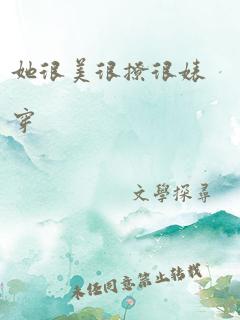 她很美很撩很婊
穿
文學探尋
未经同意禁止转载